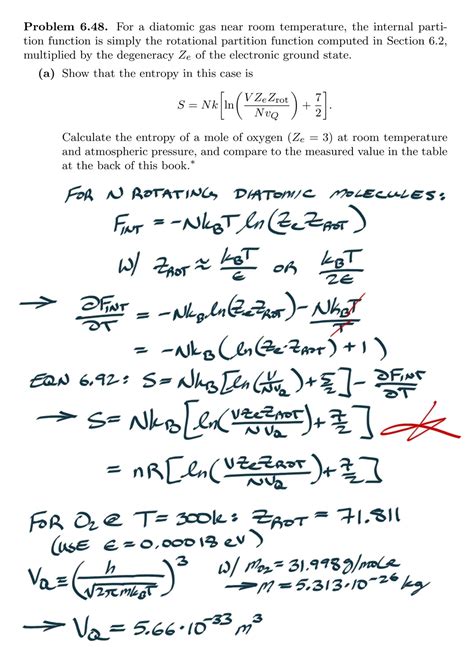 Problem 6.48. For a diatomic gas near room temperature, the internal parti-
tion function is simply the rotational partition function computed in Section 6.2,
multiplied by the degeneracy Z_e of the electronic ground state.
(a) Show that the entropy in this case is
S = Nk[ln(V Z_e Z_rot / N v_Q) + 7/2].
Calculate the entropy of a mole of oxygen (Z_e = 3) at room temperature
and atmospheric pressure, and compare to the measured value in the table
at the back of this book.*
FOR N ROTATING DIATOMIC MOLECULES:
F_INT = -Nk_BT ln(Z_e Z_ROT)
W/ Z_ROT ≈ k_BT/ε OR k_BT/2ε
→ ∂F_INT/∂T = -Nk_B ln(Z_e Z_ROT) - Nk_BT/T
= -Nk_B (ln(Z_e·Z_ROT) + 1)
EQN 6.92: S = Nk_B[ln(V/NV_Q) + 5/2] - ∂F_INT/∂T
→ S = Nk_B[ln(VZ_eZ_ROT/NV_Q) + 7/2]
= nR[ln(VZ_eZ_ROT/NV_Q) + 7/2]
FOR O_2 @ T = 300K: Z_ROT = 71.811
(USE ε = 0.00018 eV)
V_Q = (h/√2πmk_BT)^3 W/ m_O2 = 31.998 g/mole
→ m = 5.313·10^-26 kg
→ V_Q = 5.66·10^-33 m^3